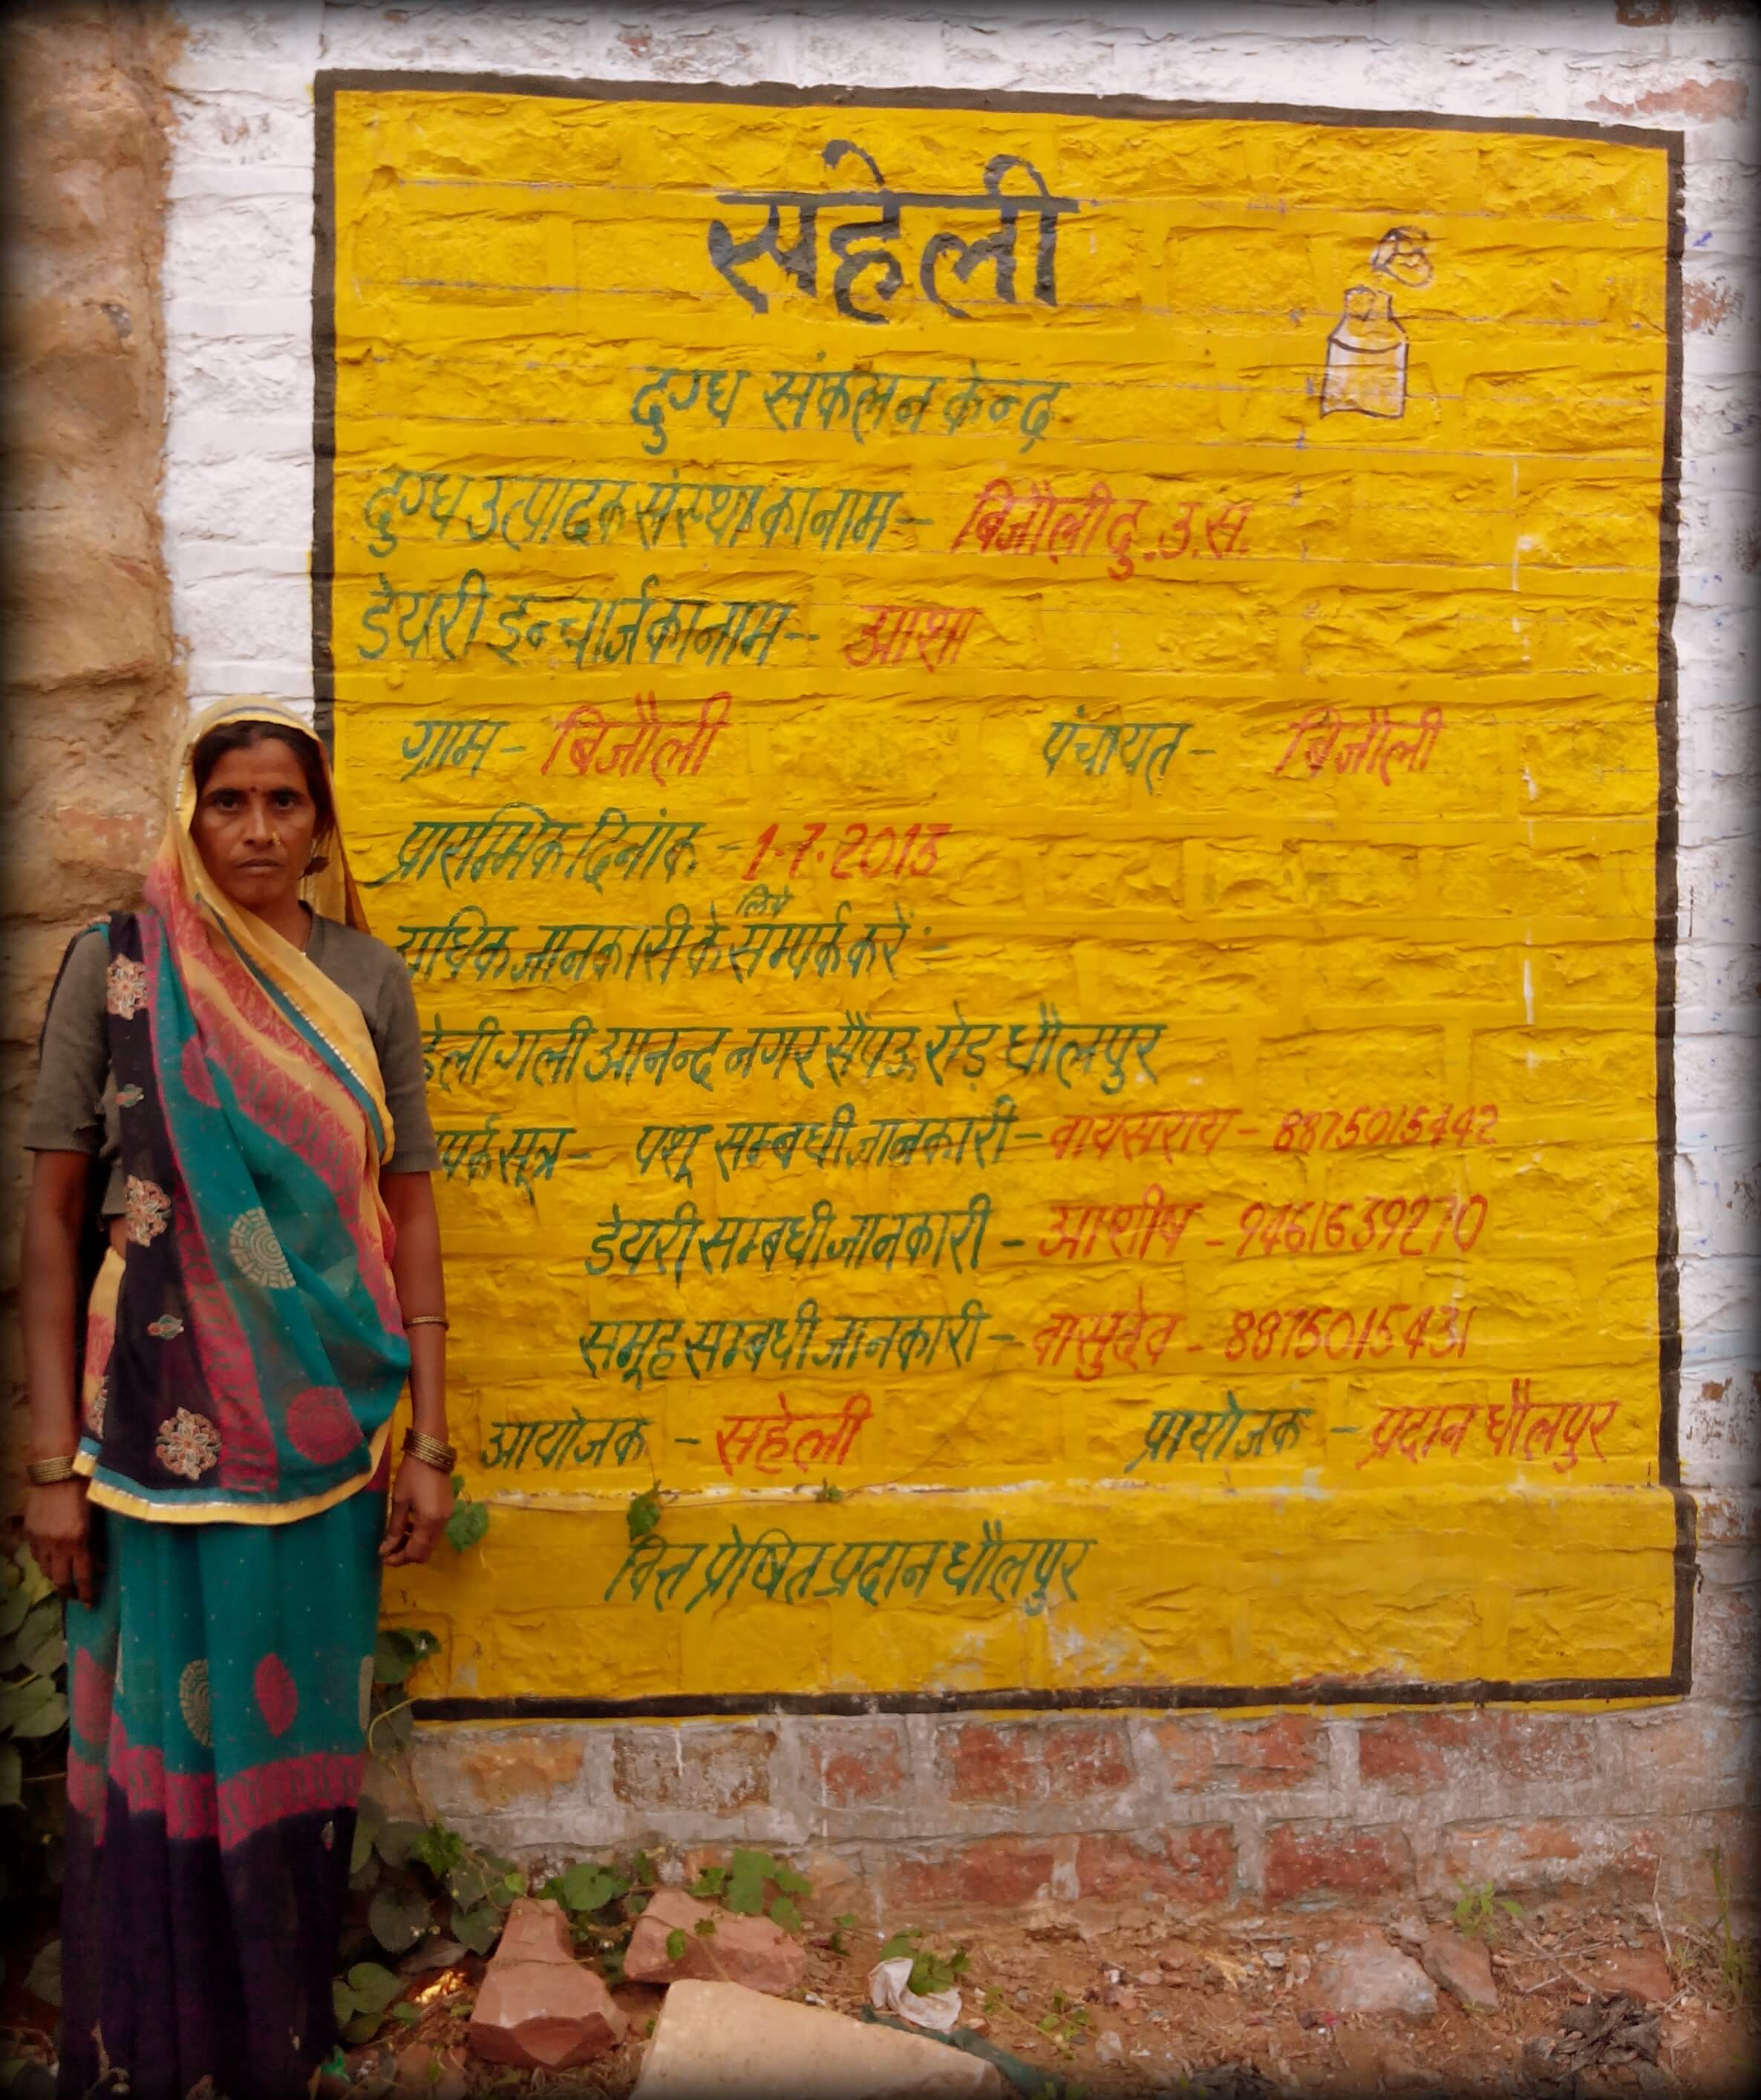 सहेली
दुग्ध संकलन केन्द्र
दुग्ध उत्पादक संस्था का नाम - बिजौली दु.उ.स.
डेयरी इन्चार्ज का नाम - आशा
ग्राम - बिजौली पंचायत - बिजौली
प्रारम्भिक दिनांक - 1-7-2013
लिये
अधिक जानकारी के सम्पर्क करें :-
हेली गली आनन्द नगर सैपऊ रोड़ धौलपुर
पर्क सूत्र - पशू सम्बधी जानकारी - वायसराय - 8875015442
डेयरी सम्बधी जानकारी - आशीष - 9461639270
समूह सम्बधी जानकारी - वासुदेव - 8875015431
आयोजक - सहेली प्रायोजक - प्रदान धौलपुर
वित्त प्रेषित प्रदान धौलपुर